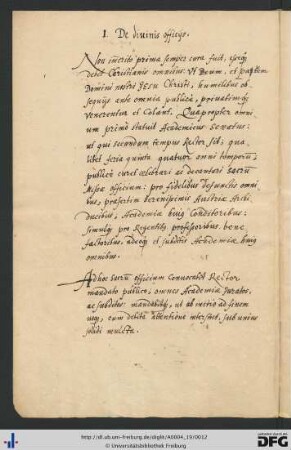 I. De divinis officijs.
Non immerito prima semper cura fuit, esseq;
debet Christianis omnibus: Ut Deum, et patrem
Domini nostri Jesu Christi, humilibus ob
sequijs ante omnia publicè, privatimq;
venerentur et colant. Quapropter omni
um primò statuit Academicus Senatus:
ut qui secundum tempus Rector sit, qua
libet feria quinta quatuor anni temporum,
publicè curet celebrari ac decantari sacrum
Missæ officium: pro fidelibus defunctis omni
bus, præsertim Serenissimis Austriæ Archi
Ducibus, Academiæ huius Conditoribus:
simulq; pro Regentibus, professoribus, bene
factoribus, adeoq; et subditis Academiæ huius
omnibus.
Ad hoc sacrum officium Convocabit Rector
mandato publico, omnes Academiæ Juratos,
ac subditos mandabitq;, ut ab initio ad finem
usq;, cum debita attentione intersint, sub unius
solidi mulcta.
http://dl.ub.uni-freiburg.de/diglit/A0004_19/0012
© Universitätsbibliothek Freiburg
gefördert durch die
DFG